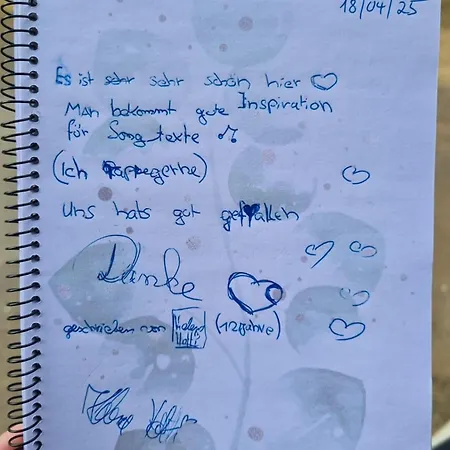 18/04/25
Es ist sehr sehr schön hier
Man bekommt gute Inspiration
für Songtexte
(Ich rappegerne)
Uns hats gut gefallen
Danke
geschrieben von (12Jahre)